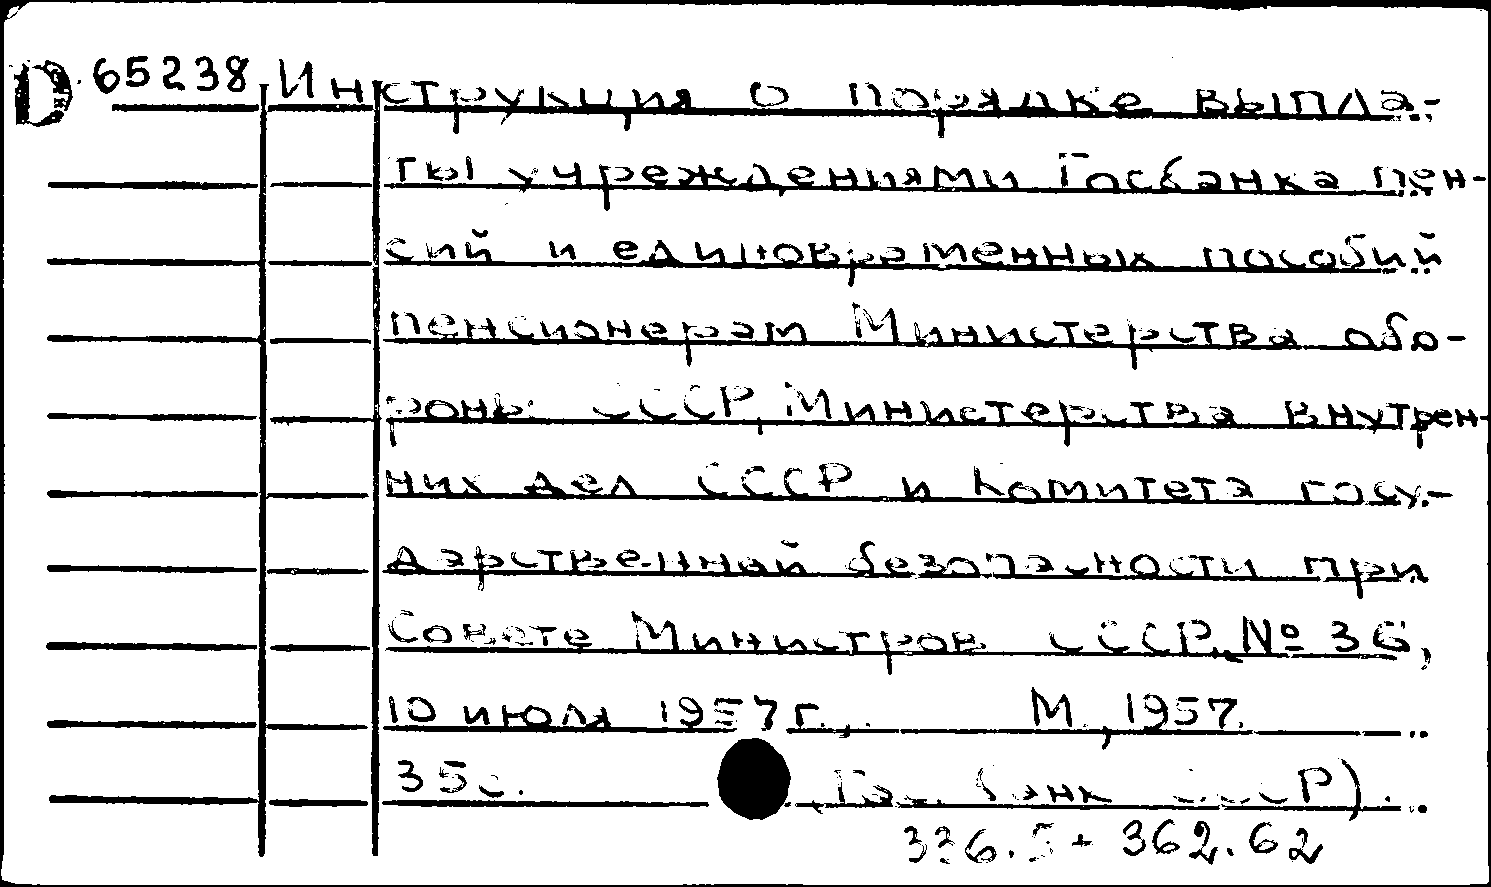 D 65238 Инструкция о порядке выпла-
ты учреждениями Госбанка пен-
сий и единовременных пособий
пенсионерам Министерства обо-
роны СССР, Министерства внутрен-
них дел СССР и Комитета госу-
дарственной безопасности при
Совете Министров СССР. № 36,
10 июля 1957 г., М., 1957.
35 с. (Гос. банк СССР).
336.5 + 362.62